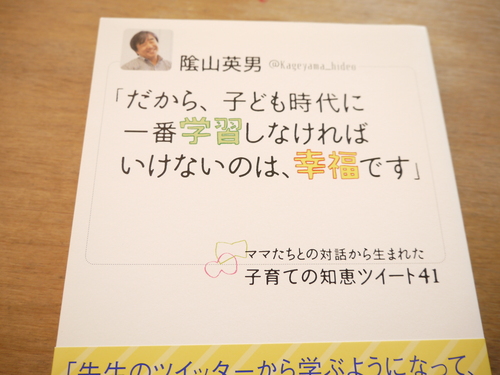 陰山英男 @kageyama_hideo
「だから、子ども時代に
一番学習しなければ
いけないのは、幸福です」
ママたちとの対話から生まれた
子育ての知恵ツイート41
「先生のツイッターから学ぶようになって、